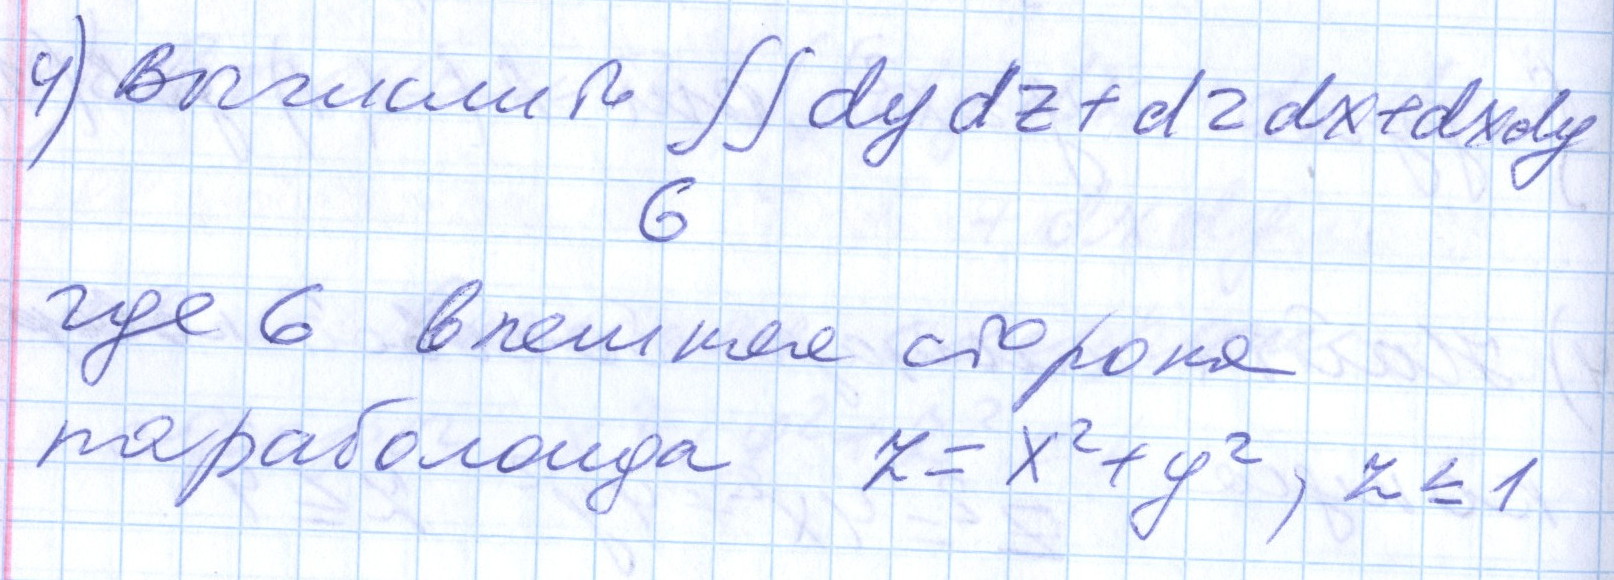 4) Вычислить ∬ dydz + dzdx + dxdy
б
где б внешняя сторона
параболоида z = x² + y², z ≤ 1